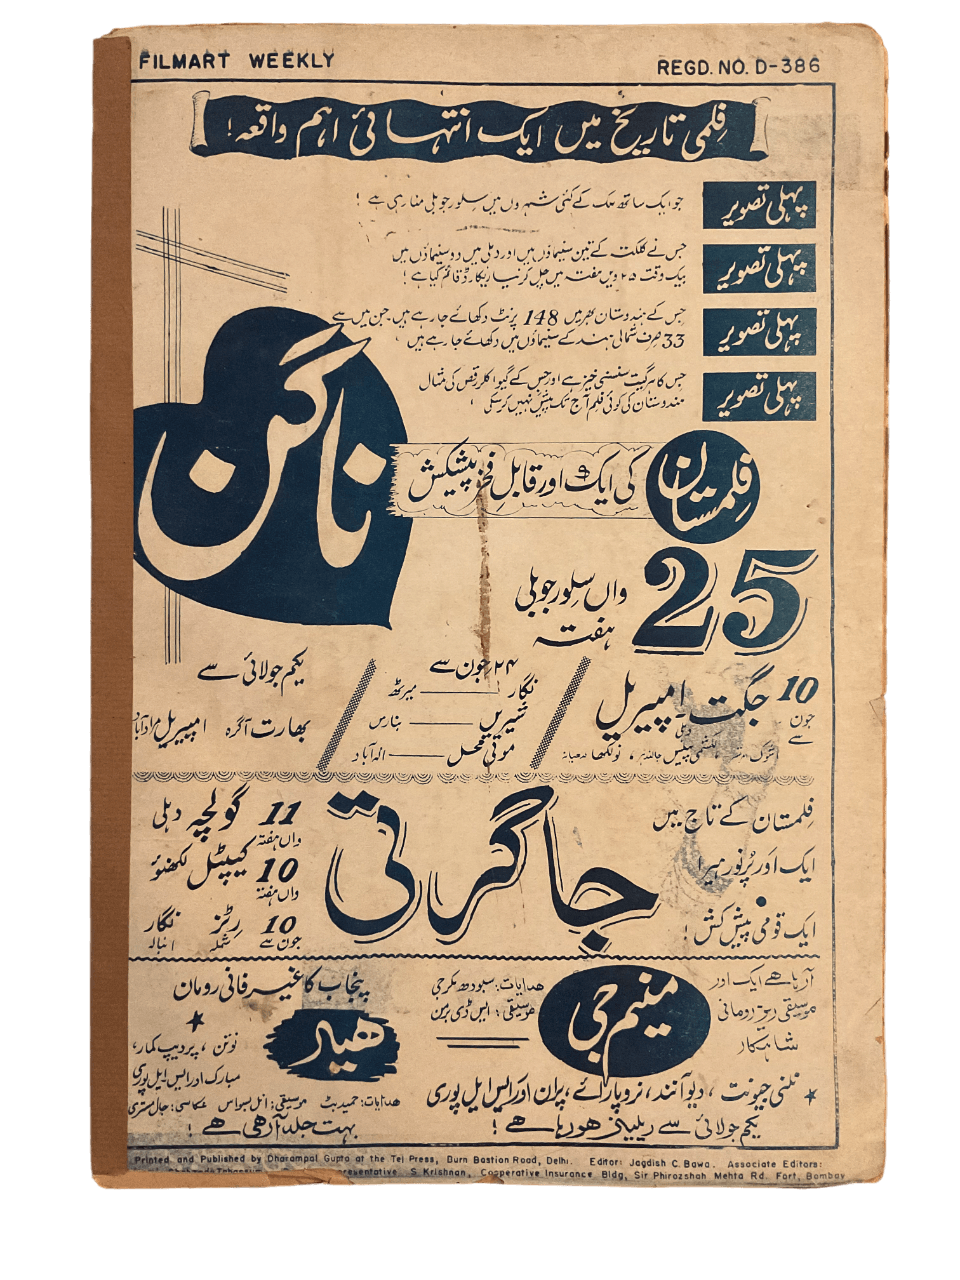 FILMART WEEKLY
REGD. NO. D-386
فلمی تاریخ میں ایک انتہائی اہم واقعہ!
پہلی تصویر
جو ایک ساتھ ملک کے کئی شہروں میں سِلور جوبلی منا رہی ہے!
پہلی تصویر
جس نے کلکتہ کے تین سنیماؤں میں اور دہلی میں دو سنیماؤں میں
بیک وقت ۲۵ ویں ہفتہ میں چل کر نیا ریکارڈ قائم کیا ہے!
پہلی تصویر
جس کے ہندوستان بھر میں 148 پرنٹ دکھائے جا رہے ہیں جن میں سے
33 صرف شمالی ہند کے سنیماؤں میں دکھائے جا رہے ہیں
پہلی تصویر
جس کا ہر گیت سنسنی خیز ہے اور جس کے گیوا کلر رقص کی مثال
ہندوستان کی کوئی فلم آج تک پیش نہیں کر سکی
ناگن
فلمستان
کی ایک اور قابلِ فخر پیشکش
25
واں سِلور جوبلی
ہفتہ
10
جون
سے
جگت امپیریل
دہلی
لکشمی پیلس جالندھر، نولکھا لدھیانہ
۲۴ جون سے
نگار — میرٹھ
شیریں — بنارس
موتی محل — الہ آباد
یکم جولائی سے
بھارت آگرہ امپیریل مرادآباد
فلمستان کے تاج میں
ایک اور پُرنور ہیرا
ایک قومی پیش کش!
جاگرتی
11 گولچہ دہلی
واں ہفتہ
10 کیپٹل لکھنؤ
واں ہفتہ
10 رِٹز نگار
جون سے شملہ انبالہ
آ رہا ھے ایک اور
موسیقی ریز رومانی
شاہکار
منیم جی
ھدایات: سبودھ مکرجی
موسیقی: ایس ڈی برمن
نلنی جیونت، دیو آنند، نروپا رائے، پران اور ایس ایل پوری
یکم جولائی سے ریلینز ھو رہا ھے!
پنجاب کا غیر فانی رومان
ھیر
نوتن، پردیپ کمار،
مبارک اور ایس ایل پوری
ھدایات: حمید بٹ موسیقی: انل بسواس عکاسی: جال مستری
بہت جلد آ رھی ھے!
Printed and Published by Dharampal Gupta at the Tej Press, Burn Bastion Road, Delhi. Editor: Jagdish C. Bawa. Associate Editors:
Representative. S. Krishnan, Cooperative Insurance Bldg, Sir Phirozshah Mehta Rd. Fort, Bombay